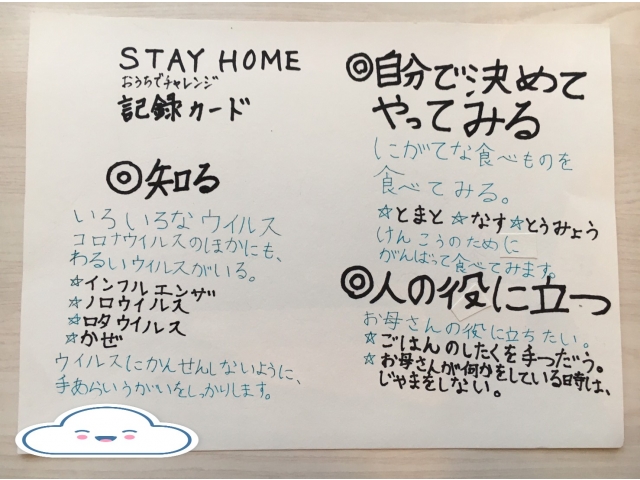 STAY HOME
おうちでチャレンジ
記録カード
◎知る
いろいろなウイルス
コロナウイルスのほかにも、
わるいウイルスがいる。
☆インフルエンザ
☆ノロウイルス
☆ロタウイルス
☆かぜ
ウイルスにかんせんしないように、
手あらいうがいをしっかりします。
◎自分で決めて
やってみる
にがてな食べものを
食べてみる。
☆とまと ☆なす ☆とうみょう
けんこうのために
がんばって食べてみます。
◎人の役に立つ
お母さんの役に立ちたい。
☆ごはんのしたくを手つだう。
☆お母さんが何かをしている時は、
じゃまをしない。